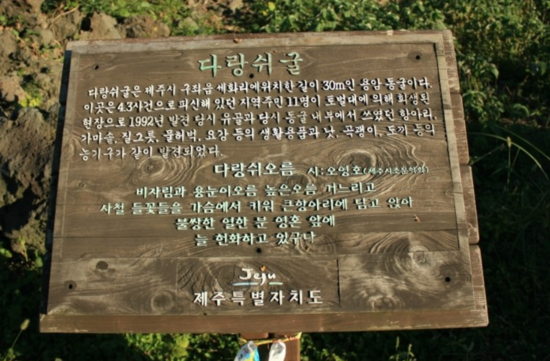 다랑쉬굴
다랑쉬굴은 제주시 구좌읍 세화리에위치한 길이 30m인 용암 동굴이다.
이곳은 4.3사건으로 피신해 있던 지역주민 11명이 토벌대에 의해 희생된
현장으로 1992년 발견 당시 유골과 당시 동굴 내부에서 쓰였던 항아리,
가마솥, 질그릇, 물허벅, 요강 등의 생활용품과 낫, 곡괭이, 도끼 등의
농기구가 같이 발견되었다.
다랑쉬오름 시:오영호(제주시조문학회)
비자림과 용눈이오름 높은오름 거느리고
사철 들꽃들을 가슴에서 키워 큰항아리에 담고 앉아
불쌍한 열한 분 영혼 앞에
늘 헌화하고 있구나
Jeju
제주특별자치도